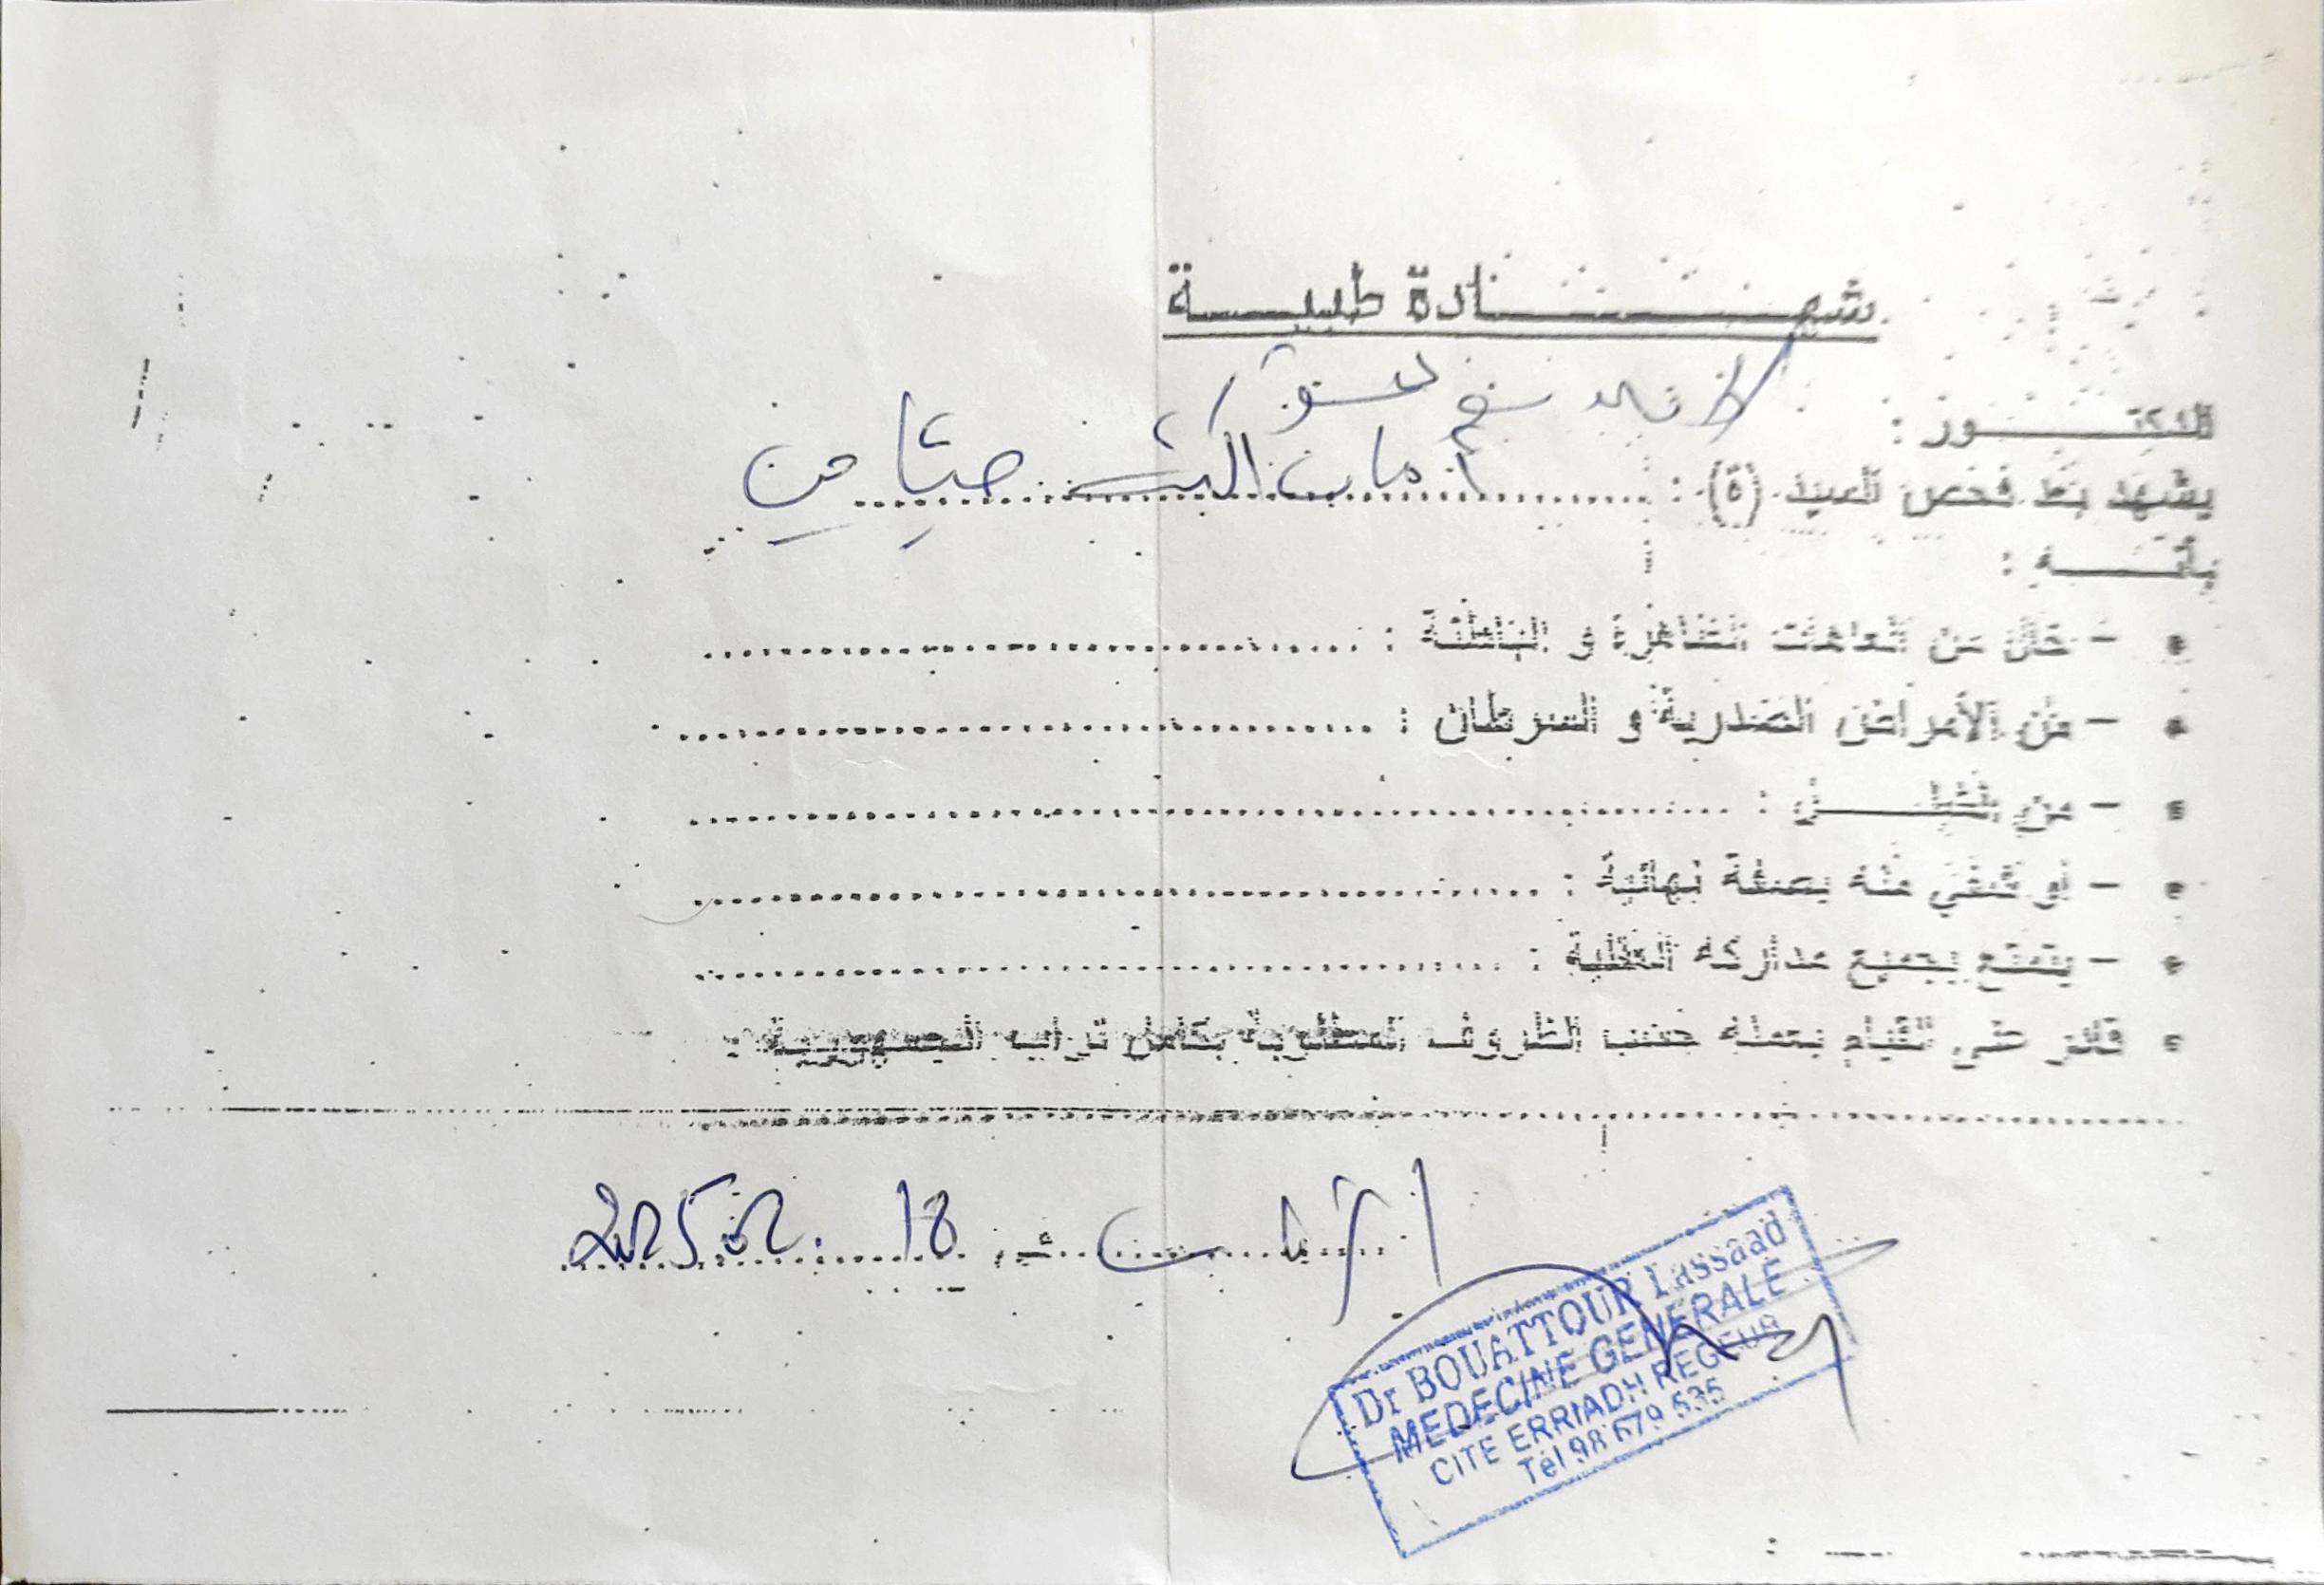 شهـــــــادة طبيـــــة
الدكتـــــور :
يشهد بعد فحص السيد (ة) :
بأنـــــه :
- خال من العاهات الظاهرة و الباطنة :
- من الأمراض الصدرية و السرطان :
- من
- أو شفي منه بصفة نهائية :
- يتمتع بجميع مداركه العقلية :
قادر على القيام بعمله حسب الظروف المطلوبة بكامل تراب الجمهورية .
في 18 . 02 2025
Dr BOUATTOUR Lassaad
MEDECINE GENERALE
CITE ERRIADH REGEUB
Tél 98 679 535